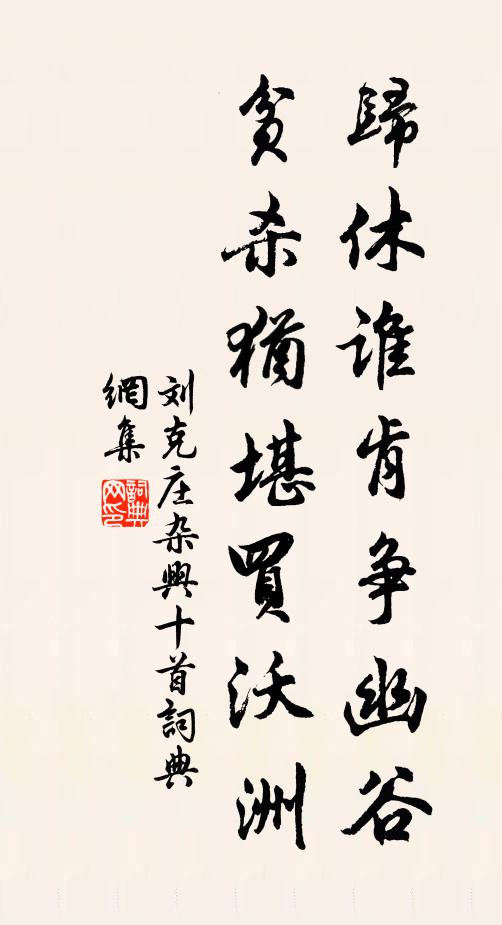 歸休谁肯争幽谷
貧杀猶堪買沃洲
刘克庄杂興十首詞典
網集
詞典
网印